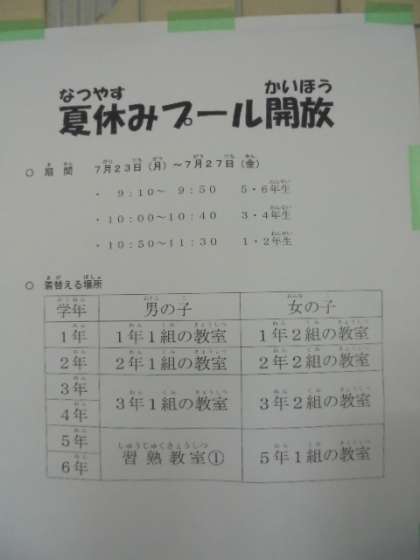 なつやす かいほう
夏休みプール開放
○ 期間 7月23日(月)～7月27日(金)
・ 9:10～ 9:50 5・6年生
・10:00～10:40 3・4年生
・10:50～11:30 1・2年生
○ 着替える場所
学年 男の子 女の子
1年 1年1組の教室 1年2組の教室
2年 2年1組の教室 2年2組の教室
3年
4年 3年1組の教室 3年2組の教室
5年 しゅうじゅくきょうしつ
6年 習熟教室① 5年1組の教室